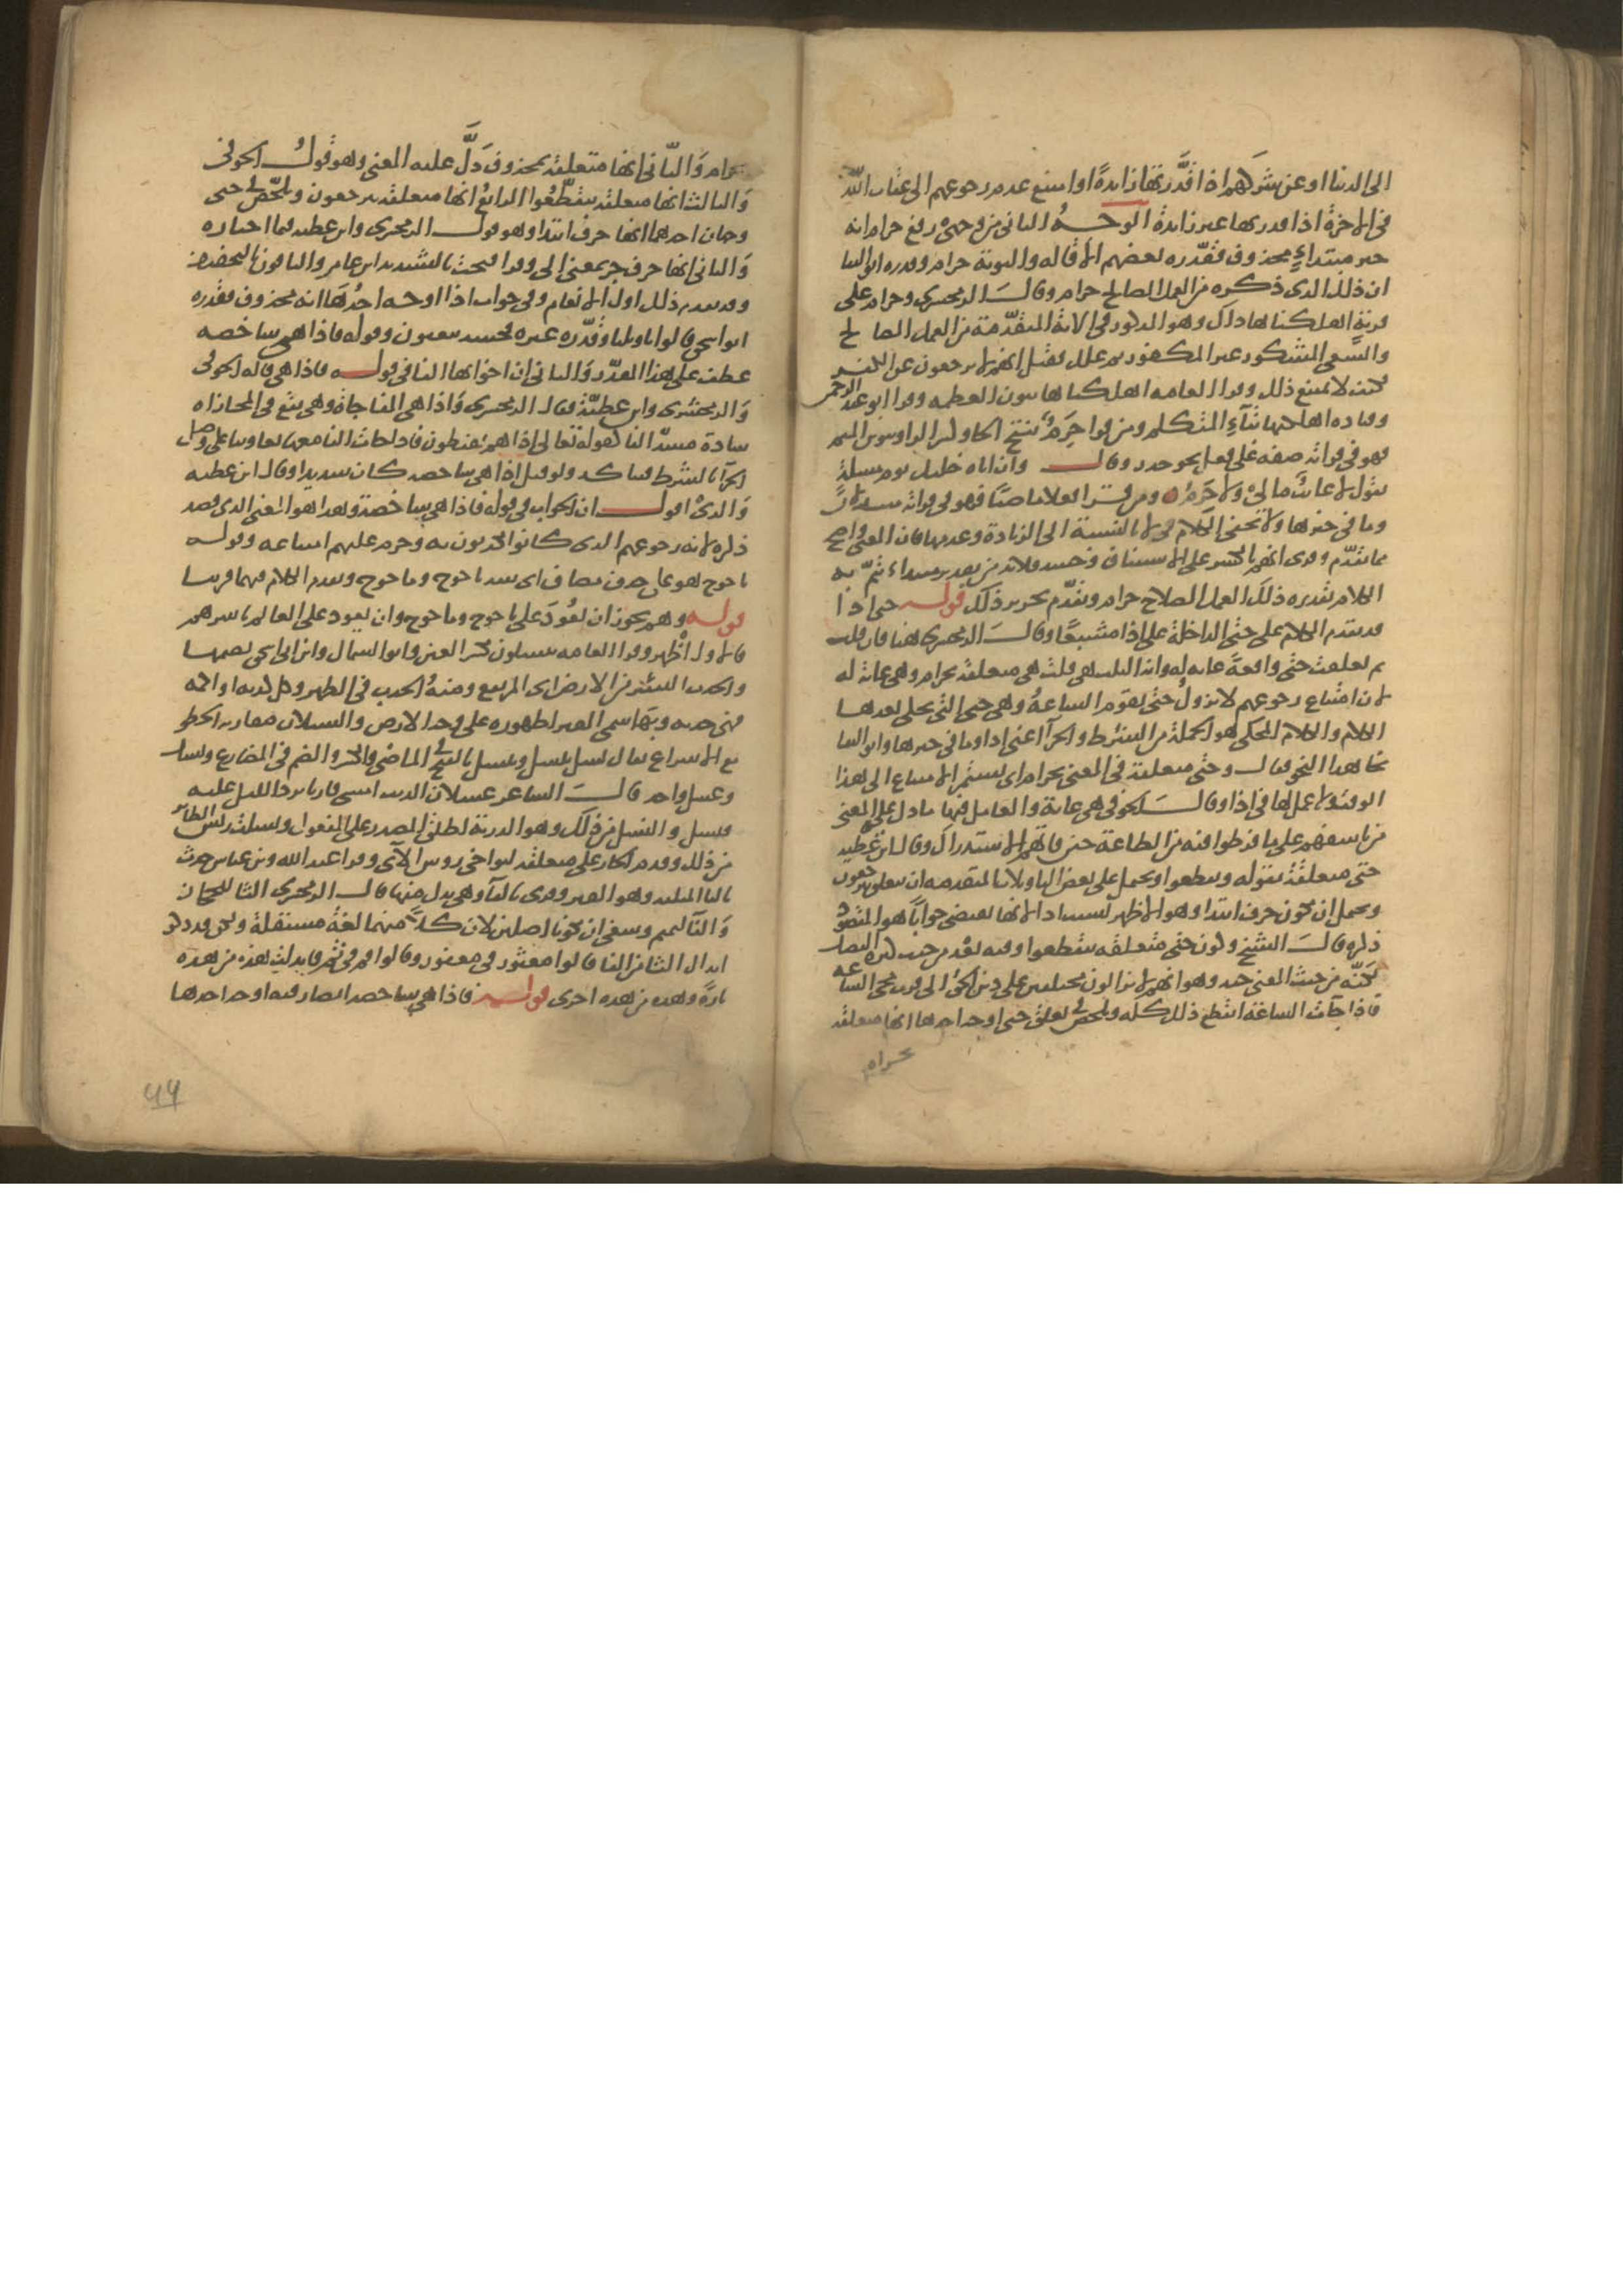 الى الدنيا او عن شركهم اذا قدرتها زايدة او امتنع عدم رجوعهم الى عقاب الله
فى الاخرة اذا قدرتها غير زايدة الوجه الثانى من وجهى رفع حرام انه
خبر مبتداء محذوف فقدره بعضهم الاقالة والتوبة حرام وقدره ابو البقا
اى ذلك الذى ذكره من العمل الصالح حرام وقال الزمخشرى وحرام على
قرية اهلكناها ذاك وهو المذكور فى الاية المتقدمة من العمل الصالح
والسعى المشكور غير المكفور ثم علل فقيل انهم لا يرجعون عن الكفر
فكيف لا يمتنع ذلك وقرا العامة اهلكناها بنون العظمة وقرا ابو عبد الرحمن
وقتادة اهلكتها بتاء المتكلم ومن قرا حرم بفتح الحا وكسر الرا وتنوين الميم
فهو فى قراته صفة على فعل نحو حذر وقال وان اتاه خليل يوم مسئلة
يقول لا غائب مالى ولا حرم ومن قرا فعلا ماضيا فهو فى قراته مسند لان
وما فى حيزها ولا يخفى الكلام فى لا بالنسبة الى الزيادة وعدمها فان المعنى واضح
مما تقدم وقرى انهم بالكسر على الاستيناف وحينئذ فلا بد من تقدير مبتداء يتم به
الكلام تقديره ذلك العمل الصالح حرام وتقدم تحرير ذلك قوله حتى اذا
قد تقدم الكلام على حتى الداخلة على اذا مشبعا وقال الزمخشرى هنا فان قلت
بم تعلقت حتى واقعة غاية له واية الثلث هى قلت هى متعلقة بحرام وهى غاية له
لان امتناع رجوعهم لا يزول حتى تقوم الساعة وهى حتى التى يحكى بعدها
الكلام والكلام المحكى هو الجملة من الشرط والجزآ اعنى اذا وما فى حيزها وابو البقا
نحا هذا النحو فقال وحتى متعلقة فى المعنى بحرام اى يستمر الامتناع الى هذا
الوقت ولا عمل لها فى اذا وقال الحوفى هى غاية والعامل فيها ما دل على المعنى
من تاسفهم على ما فرطوا فيه من الطاعة حين فاتهم الاستدراك وقال ابن عطية
حتى متعلقة بقوله وتقطعوا ويحتمل على بعض التاويلات المتقدمة ان تتعلق بيرجعون
ويحتمل ان تكون حرف ابتدا وهو الاظهر بسبب اذا لانها تقتضى جوابا هو المقصود
ذكره قال الشيخ وكون حتى متعلقة بتقطعوا فيه بعد من حيث كثرة الفصل
لكنه من حيث المعنى جيد وهو انهم لا يزالون مختلفين على دين الحق الى قرب مجى الساعة
فاذا جآت الساعة انقطع ذلك كله وتلخص فى تعلق حتى اوجه احدها انها متعلقة
بحرام
بحرام والثانى انها متعلقة بمحذوف دل عليه المعنى وهو قول الحوفى
والثالث انها متعلقة بتقطعوا الرابع انها متعلقة بيرجعون وتلخص فى حتى
وجهان احدهما انها حرف ابتدا وهو قول الزمخشرى وابن عطية فيما اختاره
والثانى انها حرف جر بمعنى الى وقرا فتحت بالتشديد ابن عامر والباقون بالتخفيف
وقد تقدم ذلك اول الانعام وفى جواب اذا اوجه احدها انه محذوف فقدره
ابو اسحق قالوا يا ويلنا وقدره غيره فحينئذ يبعثون وقوله فاذا هى شاخصة
عطف على هذا المقدر والثانى ان جوابها الفا فى قوله فاذا هى قاله الحوفى
والزمخشرى وابن عطية فقال الزمخشرى واذا هى الفاجاة وهى تقع فى المجازاة
سادة مسد الفا كقوله تعالى اذا هم يقنطون فاذا جات الفا معها تعاونتا على وصل
الجزآ بالشرط فيتاكد ولو قيل اذا هى شاخصة كان سديدا وقال ابن عطية
والذى اقول ان الجواب فى قوله فاذا هى شاخصة وهذا هو المعنى الذى قصد
ذكره لانه رجوعهم الذى كانوا يكذبون به وحرم عليهم امتناعه وقوله
ياجوج هو على حذف مضاف اى سد ياجوج وماجوج وتقدم الكلام فيهما قريبا
قوله وهم يجوز ان يعود على ياجوج وماجوج وان يعود على العالم باسرهم
والاول اظهر وقرا العامة ينسلون بكسر العين وابو السمال وابن ابى اسحق بضمها
والحدب النشز من الارض اى المرتفع ومنه الحدب فى الظهر وكل كدية او اكمة
فهى حدبة وبها سمى القبر لظهوره على وجه الارض والنسلان مقاربة الخطو
مع الاسراع يقال نسل ينسل وينسل بالفتح فى الماضى والكسر والضم فى المضارع ونسل
وعسل واحد قال الشاعر عسلان الذيب امسى قاربا برد الليل عليه
فنسل والنسل من ذلك وهو الذرية اطلق المصدر على المفعول ونسلت ريش الطائر
من ذلك وقدم الجار على متعلقه لتواخى روس الآى وقرا عبد الله وابن عباس جدث
بالثا المثلثة وهو القبر وقرى بالفآ وهى بدل منها قال الزمخشرى الثا للحجاز
والفآ لتميم وينبغى ان يكونا اصلين لان كلا منهما لغة مستقلة ولكن قد كثر
ابدال الثا من الفا قالوا مغثور فى مغفور وقالوا فم فى ثم فابدلت هذه من هذه
تارة وهذه من هذه اخرى قوله فاذا هى شاخصة ابصار فيه اوجه احدها